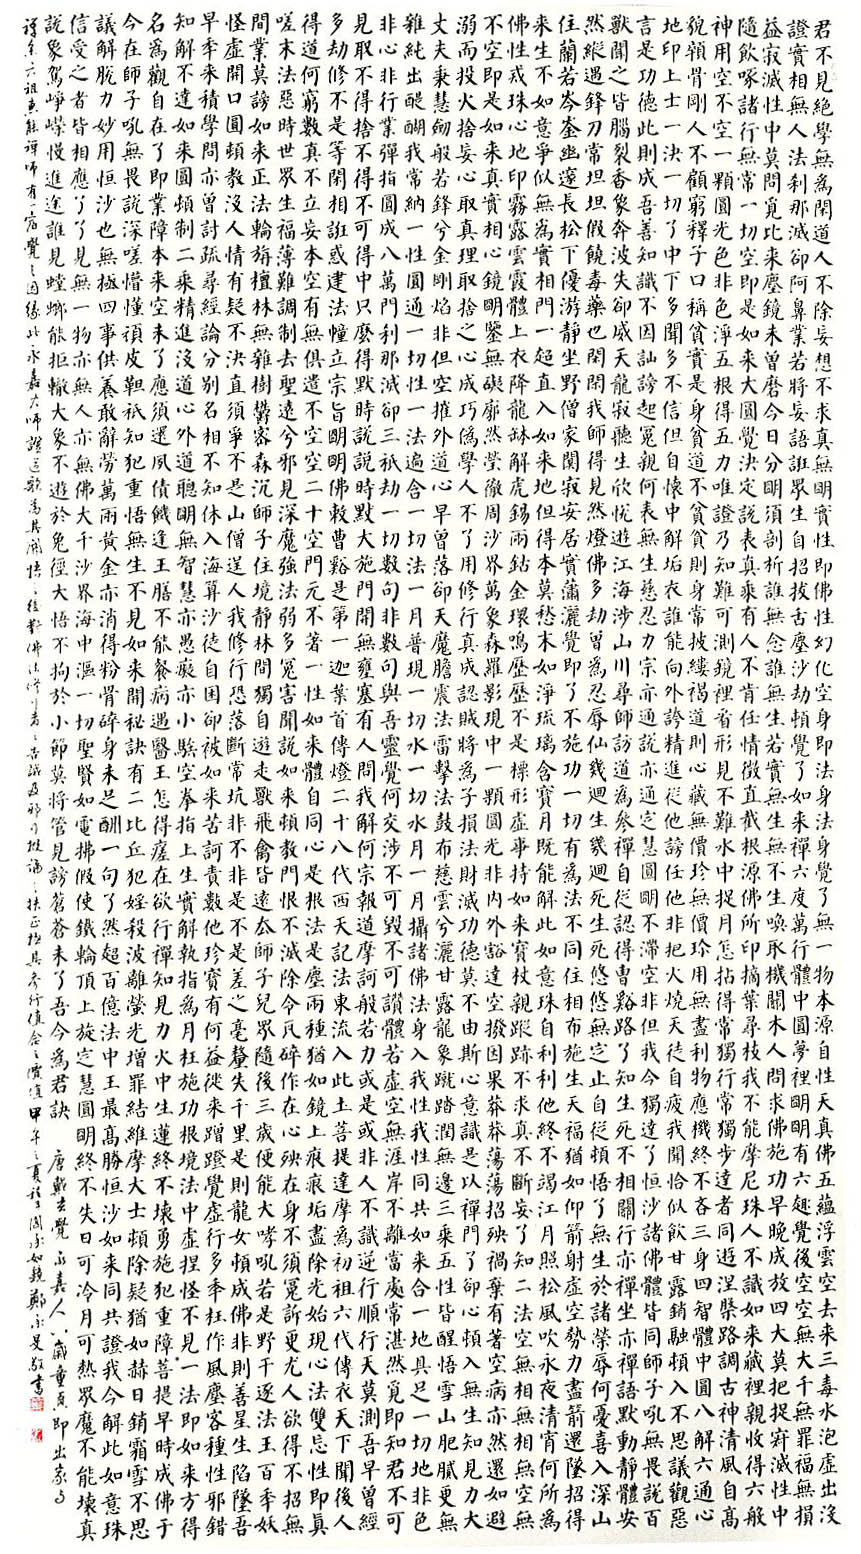 君不見絕學無為閑道人不除妄想不求真無明實性即佛性幻化空身即法身法身覺了無一物本源自性天真佛五蘊浮雲空去來三毒水泡虛出沒
證實相無人法剎那滅卻阿鼻業若將妄語誑眾生自招拔舌塵沙劫頓覺了如來禪六度萬行體中圓夢裡明明有六趣覺後空空無大千無罪福無損
益寂滅性中莫問覓比來塵鏡未曾磨今日分明須剖析誰無念誰無生若實無生無不生喚取機關木人問求佛施功早晚成放四大莫把捉寂滅性中
隨飲啄諸行無常一切空即是如來大圓覺決定說表真乘有人不肯任情徵直截根源佛所印摘葉尋枝我不能摩尼珠人不識如來藏裡親收得六般
神用空不空一顆圓光色非色淨五根得五力唯證乃知難可測鏡裡看形見不難水中捉月怎拈得常獨行常獨步達者同遊涅槃路調古神清風自高
貌顇骨剛人不顧窮釋子口稱貧實是身貧道不貧貧則身常披縷褐道則心藏無價珍無價珍用無盡利物應機終不吝三身四智體中圓八解六通心
地印上士一決一切了中下多聞多不信但自懷中解垢衣誰能向外誇精進從他謗任他非把火燒天徒自疲我聞恰似飲甘露銷融頓入不思議觀惡
言是功德此則成吾善知識不因訕謗起冤親何表無生慈忍力宗亦通說亦通定慧圓明不滯空非但我今獨達了恒沙諸佛體皆同師子吼無畏說百
獸聞之皆腦裂香象奔波失卻威天龍寂聽生欣悅遊江海涉山川尋師訪道為參禪自從認得曹谿路了知生死不相關行亦禪坐亦禪語默動靜體安
然縱遇鋒刀常坦坦假饒毒藥也閑閑我師得見然燈佛多劫曾為忍辱仙幾迴生幾迴死生死悠悠無定止自從頓悟了無生於諸榮辱何憂喜入深山
住蘭若岑崟幽邃長松下優游靜坐野僧家闃寂安居實蕭灑覺即了不施功一切有為法不同住相布施生天福猶如仰箭射虛空勢力盡箭還墜招得
來生不如意爭似無為實相門一超直入如來地但得本莫愁末如淨琉璃含寶月既能解此如意珠自利利他終不竭江月照松風吹永夜清宵何所為
佛性戒珠心地印霧露雲霞體上衣降龍缽解虎錫兩鈷金環鳴歷歷不是標形虛事持如來寶杖親蹤跡不求真不斷妄了知二法空無相無相無空無
不空即是如來真實相心鏡明鑒無礙廓然瑩徹周沙界萬象森羅影現中一顆圓光非內外豁達空撥因果莽莽蕩蕩招殃禍棄有著空病亦然還如避
溺而投火捨妄心取真理取捨之心成巧偽學人不了用修行真成認賊將為子損法財滅功德莫不由斯心意識是以禪門了卻心頓入無生知見力大
丈夫秉慧劍般若鋒兮金剛焰非但空摧外道心早曾落卻天魔膽震法雷擊法鼓布慈雲兮灑甘露龍象蹴踏潤無邊三乘五性皆醒悟雪山肥膩更無
雜純出醍醐我常納一性圓通一切性一法遍含一切法一月普現一切水一切水月一月攝諸佛法身入我性我性同共如來合一地具足一切地非色
非心非行業彈指圓成八萬門剎那滅卻三祇劫一切數句非數句與吾靈覺何交涉不可毀不可讚體若虛空無涯岸不離當處常湛然覓即知君不可
見取不得捨不得不可得中只麼得默時說說時默大施門開無壅塞有人問我解何宗報道摩訶般若力或是或非人不識逆行順行天莫測吾早曾經
多劫修不是等閑相誑惑建法幢立宗旨明明佛敕曹谿是第一迦葉首傳燈二十八代西天記法東流入此土菩提達摩為初祖六代傳衣天下聞後人
得道何窮數真不立妄本空有無俱遣不空空二十空門元不著一性如來體自同心是根法是塵兩種猶如鏡上痕痕垢盡除光始現心法雙忘性即真
嗟末法惡時世眾生福薄難調制去聖遠兮邪見深魔強法弱多冤害聞說如來頓教門恨不滅除令瓦碎作在心殃在身不須冤訴更尤人欲得不招無
間業莫謗如來正法輪旃檀林無雜樹鬱密森沉師子住境靜林間獨自遊走獸飛禽皆遠去師子兒眾隨後三歲便能大哮吼若是野干逐法王百年妖
怪虛開口圓頓教沒人情有疑不決直須爭不是山僧逞人我修行恐落斷常坑非不非是不是差之毫釐失千里是則龍女頓成佛非則善星生陷墜吾
早年來積學問亦曾討疏尋經論分別名相不知休入海算沙徒自困卻被如來苦訶責數他珍寶有何益從來蹭蹬覺虛行多年枉作風塵客種性邪錯
知解不達如來圓頓制二乘精進沒道心外道聰明無智慧亦愚癡亦小騃空拳指上生實解執指為月枉施功根境法中虛捏怪不見一法即如來方得
名為觀自在了即業障本來空未了應須還夙債饑逢王膳不能餐病遇醫王怎得瘥在欲行禪知見力火中生蓮終不壞勇施犯重障菩提早時成佛于
今在師子吼無畏說深嗟懵懂頑皮靼祇知犯重悟無生不見如來開秘訣有二比丘犯婬殺波離螢光增罪結維摩大士頓除疑猶如赫日銷霜雪不思
議解脫力妙用恒沙也無極四事供養敢辭勞萬兩黃金亦消得粉骨碎身未足酬一句了然超百億法中王最高勝恒沙如來同共證我今解此如意珠
信受之者皆相應了了見無一物亦無人亦無佛大千沙界海中漚一切聖賢如電拂假使鐵輪頂上旋定慧圓明終不失日可冷月可熱眾魔不能壞真
說象駕崢嶸慢進途誰見螳螂能拒轍大象不遊於兔徑大悟不拘於小節莫將管見謗蒼蒼未了吾今為君訣 唐戴玄覺永嘉人八歲童真即出家
六祖惠能禪師有一宿覺之因緣此永嘉大師證道歌為其開悟之後對佛法修行者之告誡及邪行